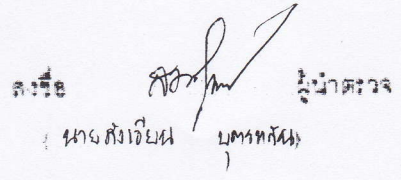 ลงชื่อ ผู้นำตรวจ
(นายสังเวียน บุตรทสัน)